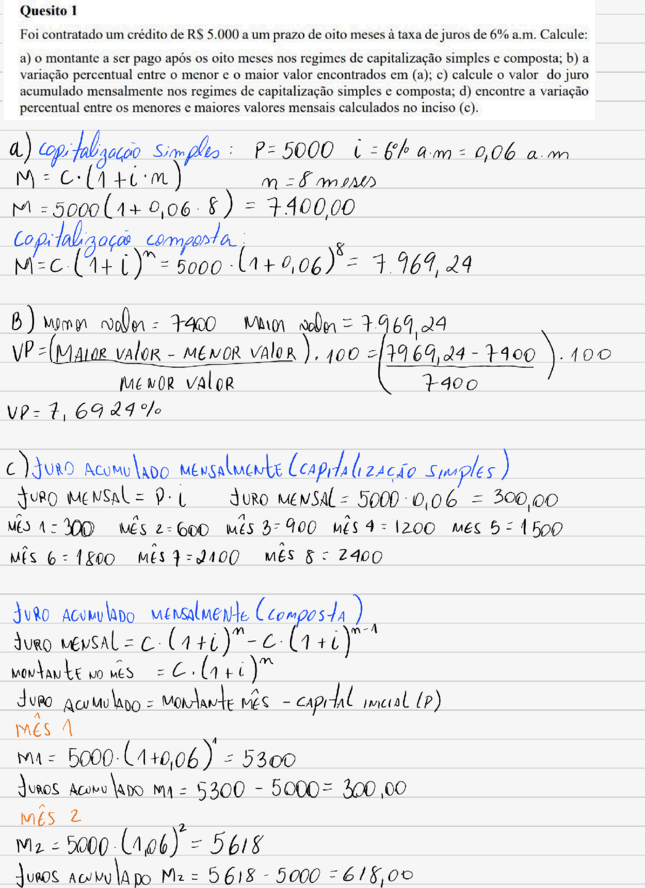 Quesito 1
Foi contratado um crédito de R$ 5.000 a um prazo de oito meses à taxa de juros de 6% a.m. Calcule:
a) o montante a ser pago após os oito meses nos regimes de capitalização simples e composta; b) a
variação percentual entre o menor e o maior valor encontrados em (a); c) calcule o valor do juro
acumulado mensalmente nos regimes de capitalização simples e composta; d) encontre a variação
percentual entre os menores e maiores valores mensais calculados no inciso (c).
a) capitalização simples: P= 5000 i = 6% a.m = 0,06 a.m
M = C·(1+i·n) n = 8 meses
M = 5000(1+0,06·8) = 7.400,00
capitalização composta:
M=C·(1+i)^n = 5000·(1+0,06)^8 = 7.969,24
B) menor valor = 7400 MAIOR valor = 7.969,24
VP = (MAIOR VALOR - MENOR VALOR / MENOR VALOR)·100 = (7969,24 - 7400 / 7400)·100
VP = 7,6924%
C) JURO ACUMULADO MENSALMENTE (CAPITALIZAÇÃO SIMPLES)
JURO MENSAL = P·i JURO MENSAL = 5000·0,06 = 300,00
MÊS 1 = 300 MÊS 2 = 600 MÊS 3 = 900 MÊS 4 = 1200 MES 5 = 1500
MÊS 6 = 1800 MÊS 7 = 2100 MÊS 8 = 2400
JURO ACUMULADO MENSALMENTE (COMPOSTA)
JURO MENSAL = C·(1+i)^n - C·(1+i)^n-1
MONTANTE NO MÊS = C·(1+i)^n
JURO ACUMULADO = MONTANTE MÊS - CAPITAL INICIAL (P)
MÊS 1
M1 = 5000·(1+0,06)^1 = 5300
JUROS ACUMULADO M1 = 5300 - 5000 = 300,00
MÊS 2
M2 = 5000·(1,06)^2 = 5618
JUROS ACUMULADO M2 = 5618 - 5000 = 618,00